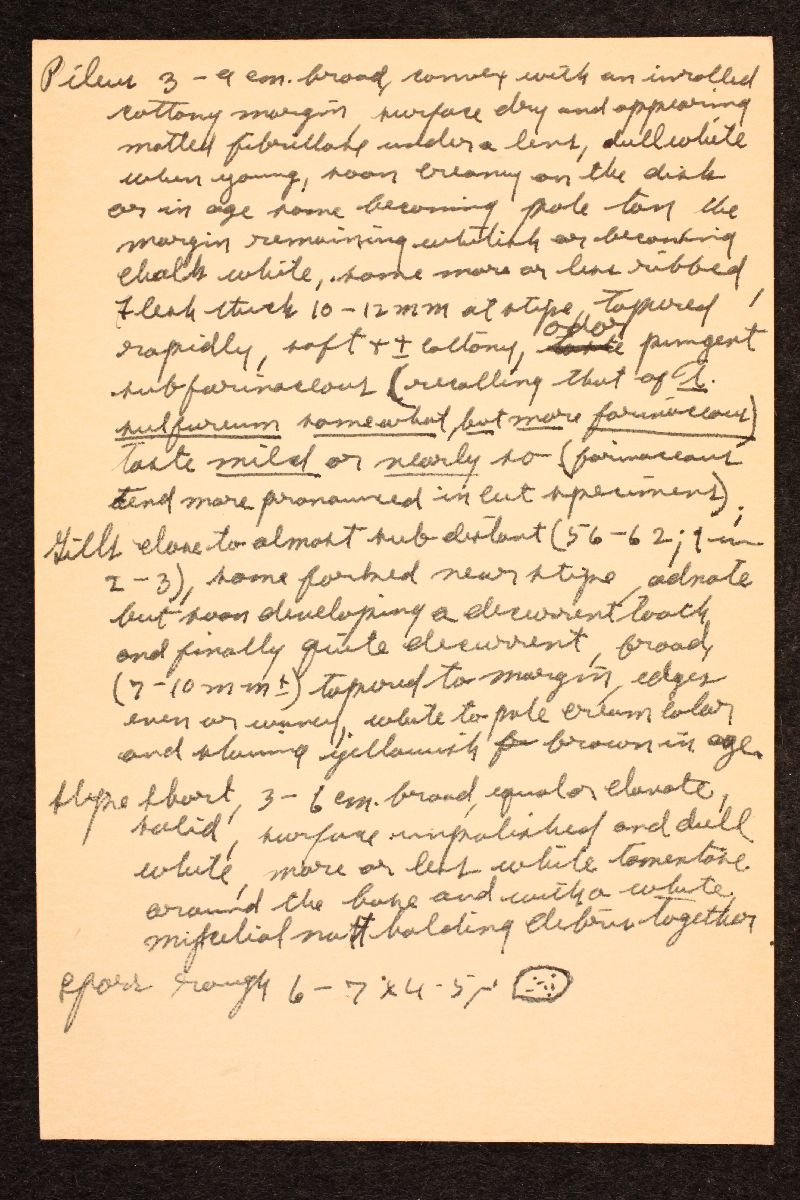 Pileus 3 - 9 cm. broad, convex with an inrolled
cottony margin, surface dry and appearing
matted fibrillose under a lens, dull white
when young, soon creamy on the disk
or in age some becoming pale tan the
margin remaining whitish or becoming
chalk white, some more or less ribbed,
Flesh thick 10-12 mm at stipe, tapered
rapidly, soft + ± cottony, odor pungent
subfarinaceous (recalling that of T.
sulfureum somewhat, but more farinaceous)
taste mild or nearly so (farinaceous
tend more pronounced in cut specimens).
Gills close to almost sub distant (56-62;
2-3), some forked near stipe, adnate
but soon developing a decurrent tooth
and finally quite decurrent, broad,
(7-10 mm ±) tapered to margin, edges
even or wavy, white to pale cream color
and staining yellowish brown in age.
Stipe short, 3-6 cm. broad, equal or clavate,
solid, surface unpolished and dull
white, more or less white tomentose
around the base and with a white
mycelial matt holding debris together
Spores rough 6-7 x 4-5 µ